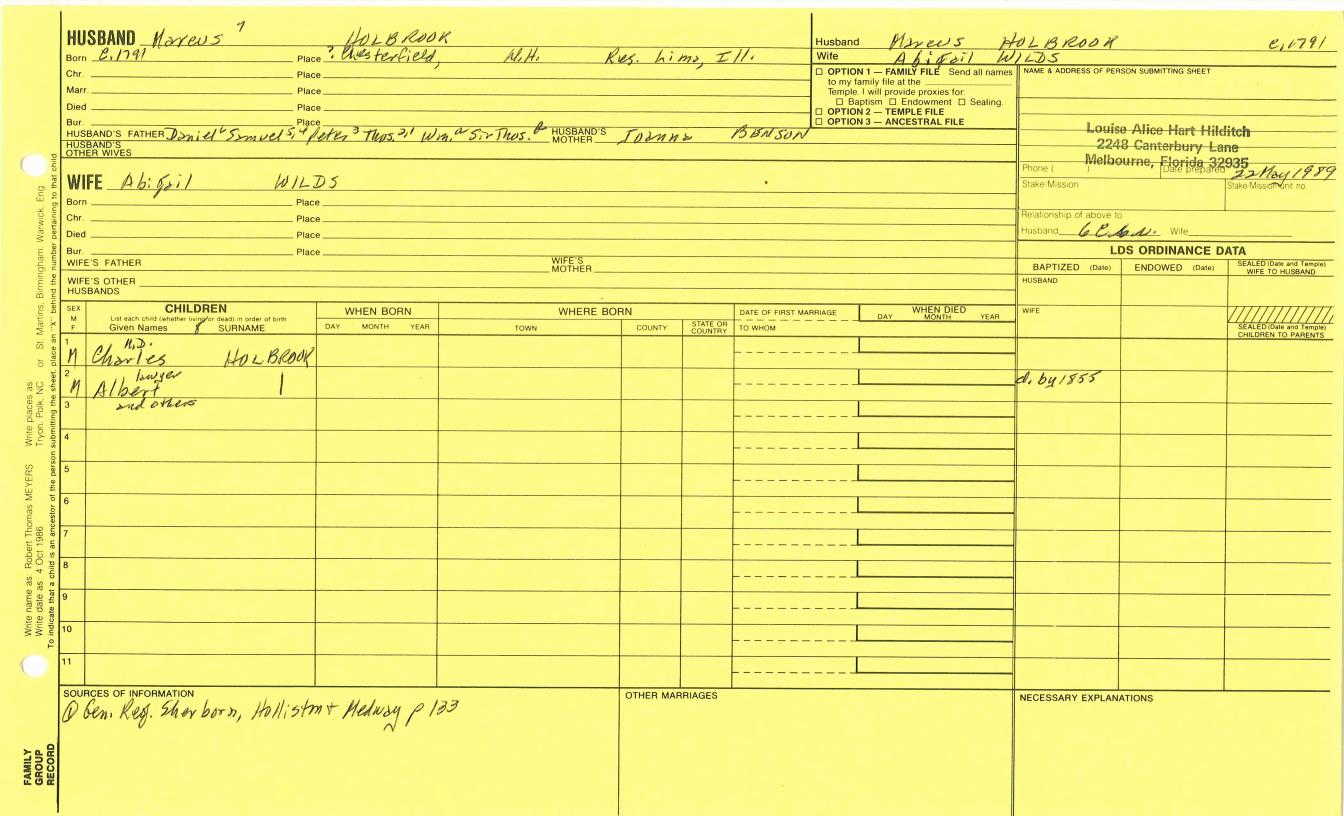 HUSBAND Marcus 7 HOLBROOK
Born c.1791 Place ? Chesterfield, N.H. Res. Lima, Ill.
Chr. Place
Marr. Place
Died Place
Bur. Place
HUSBAND'S FATHER Daniel 6 Samuel 5,4 Peter 3 Thos. 2,1 Wm. a Sir Thos. B HUSBAND'S MOTHER Joanna BENSON
HUSBAND'S OTHER WIVES
WIFE Abigail WILDS
Born Place
Chr. Place
Died Place
Bur. Place
WIFE'S FATHER WIFE'S MOTHER
WIFE'S OTHER HUSBANDS
Husband Marcus HOLBROOK c.1791
Wife Abigail WILDS
☐ OPTION 1 — FAMILY FILE Send all names
to my family file at the
Temple. I will provide proxies for:
☐ Baptism ☐ Endowment ☐ Sealing.
☐ OPTION 2 — TEMPLE FILE
☐ OPTION 3 — ANCESTRAL FILE
NAME & ADDRESS OF PERSON SUBMITTING SHEET
Louise Alice Hart Hilditch
2248 Canterbury Lane
Melbourne, Florida 32935
Phone ( ) Date prepared 22 May 1989
Stake/Mission Stake/Mission unit no.
Relationship of above to
Husband 6C. Wife
LDS ORDINANCE DATA
BAPTIZED (Date) ENDOWED (Date) SEALED (Date and Temple) WIFE TO HUSBAND
HUSBAND
WIFE
SEALED (Date and Temple) CHILDREN TO PARENTS
SEX M F
CHILDREN
List each child (whether living or dead) in order of birth
Given Names 8 SURNAME
WHEN BORN
DAY MONTH YEAR
WHERE BORN
TOWN COUNTY STATE OR COUNTRY
DATE OF FIRST MARRIAGE
TO WHOM
WHEN DIED
DAY MONTH YEAR
1 M M.D.
Charles HOLBROOK
2 M lawyer
Albert | d. by 1855
and others
3
4
5
6
7
8
9
10
11
SOURCES OF INFORMATION
① Gen. Reg. Sherborn, Holliston + Medway p 133
OTHER MARRIAGES
NECESSARY EXPLANATIONS
Write name as: Robert Thomas MEYERS Write places as: Tryon, Polk, NC or St. Martins, Birmingham, Warwick, Eng.
Write date as: 4 Oct 1986
To indicate that a child is an ancestor of the person submitting the sheet, place an "X" behind the number pertaining to that child
FAMILY
GROUP
RECORD